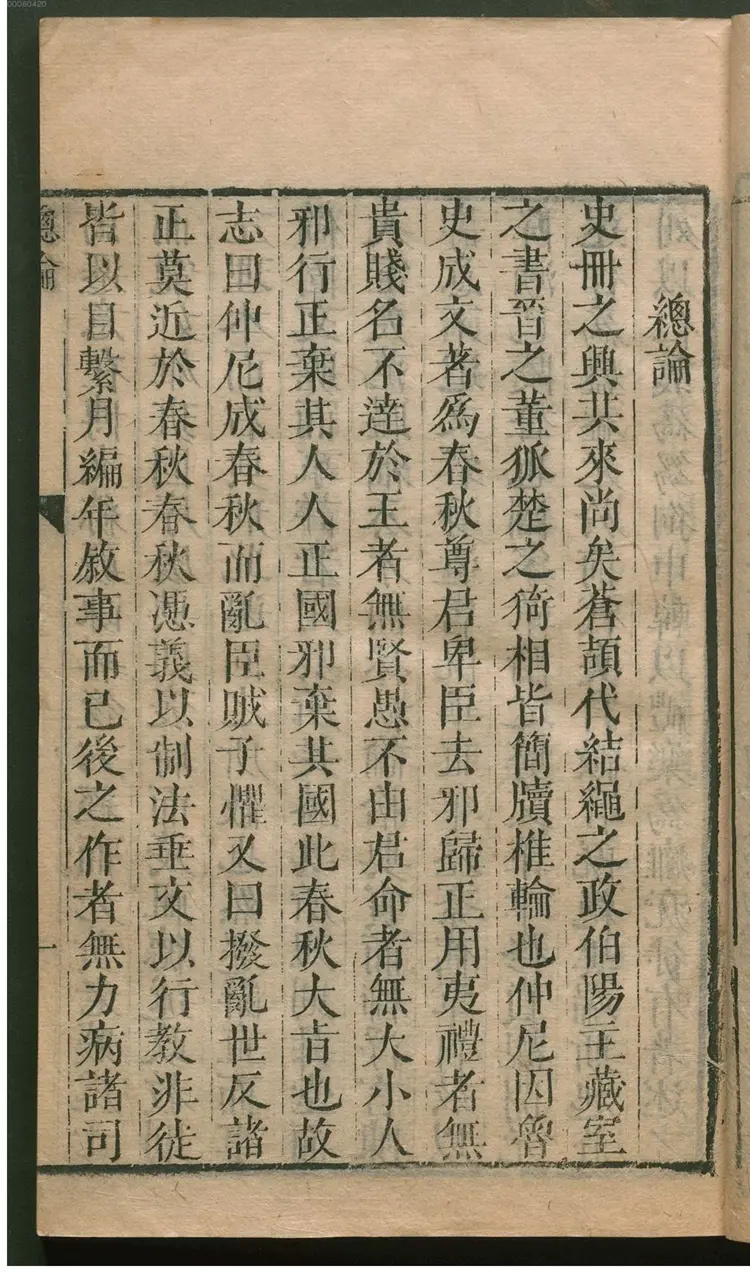 00080420
總論
史冊之興其來尚矣蒼頡代結繩之政伯陽主藏室
之書晉之董狐楚之猗相皆簡牘椎輪也仲尼因魯
史成文著為春秋尊君卑臣去邪歸正用夷禮者無
貴賤名不達於王者無賢愚不由君命者無大小人
邪行正棄其人人正國邪棄其國此春秋大旨也故
志曰仲尼成春秋而亂臣賊子懼又曰撥亂世反諸
正莫近於春秋春秋憑義以制法垂文以行教非徒
皆以日繫月編年敘事而已後之作者無力病諸司
總論
一